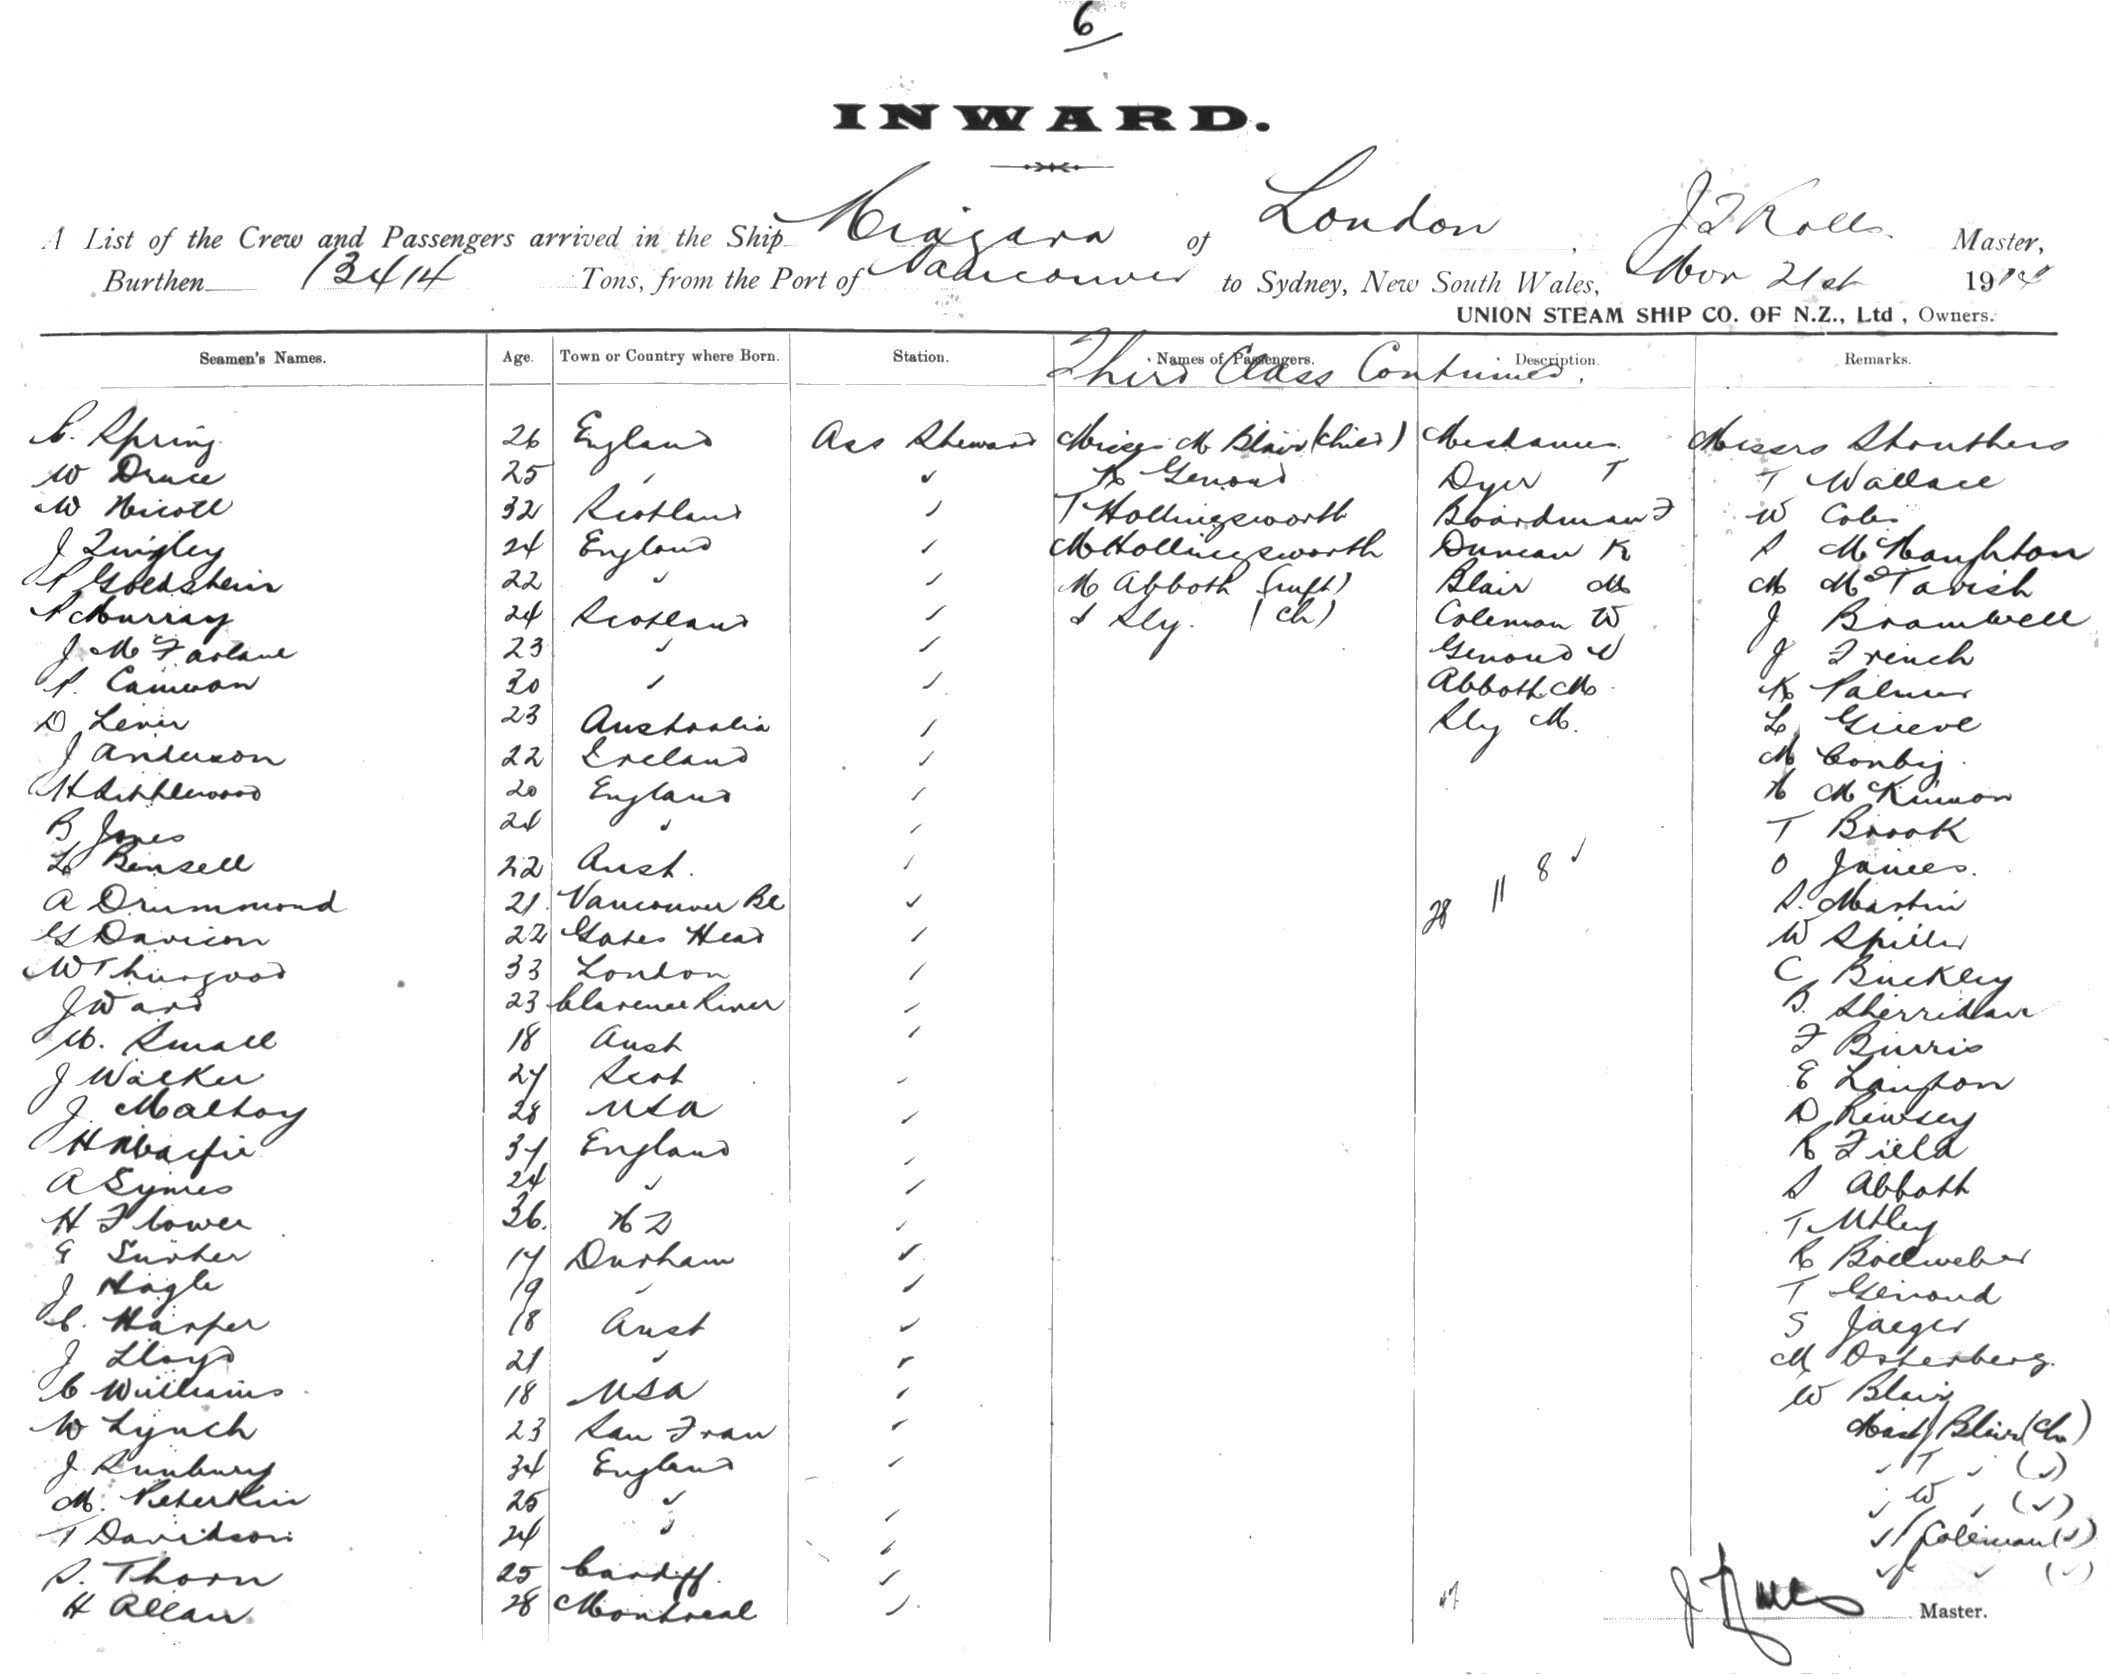 6
INWARD.
A List of the Crew and Passengers arrived in the Ship Niagara of London, J T Rolls Master,
Burthen 13414 Tons, from the Port of Vancouver to Sydney, New South Wales, Nov 21st 1914
UNION STEAM SHIP CO. OF N.Z., Ltd, Owners.
Seamen's Names. Age. Town or Country where Born. Station. Names of Passengers. Description. Remarks.
Third Class Continued.
C. Spring 26 England Ass Steward Misses M Blair (Child) Mesdames Messrs Struthers
W Druce 25 " ✓ K Genoud Dyer T T Wallace
W Nicoll 32 Scotland ✓ T Hollingsworth Boardman F W Coles
J Quigley 24 England ✓ M Hollingsworth Duncan K S McNaughton
P Goldstein 22 " ✓ M Abbott (inft) Blair M M McTavish
P Murray 24 Scotland ✓ S Sly. (Ch) Coleman W J Bramwell
J McFarlane 23 " ✓ Genoud V J French
P. Cameron 30 " ✓ Abbott M. K Palmer
D Lever 23 Australia ✓ Sly M. L Grieve
J Anderson 22 Ireland ✓ M
H Littlewood 20 England ✓ N McKinnon
B Jones 24 " ✓ T Brook
L Bensell 22 Aust. ✓ O James.
A Drummond 21. Vancouver BC ✓ 28 11 8 ✓ S. Martin
G Davison 22 Gates Head ✓ W Spiller
W Thurgood 33 London ✓ C Buckley
J Ward 23 Clarence River ✓ B. Sherridan
W. Small 18 Aust ✓ F Burris
J Walker 27 Scot ✓ E Langton
J Malhoy 28 USA ✓ D
H Macfie 37 England ✓ R Field
A Symes 24 " ✓ S Abbott
H Flower 36. NZ ✓ T Utley
E Surtees 17 Durham ✓ R Bollweber
J Hogle 19 " ✓ T Genoud
C. Harper 18 Aust ✓ S Jaeger
J Lloyd 21 " ✓ M Osterberg.
C Williams 18 USA ✓ W Blair
W Lynch 23 San Fran ✓ Mast Blair (Ch)
J Sunbury 34 England ✓ " T " (")
M. Peterkin 25 " ✓ " W " (")
T Davidson 24 " ✓ " Coleman (")
S. Thorn 25 Cardiff. ✓ " " (")
H Allan 28 Montreal ✓ J T Rolls Master.